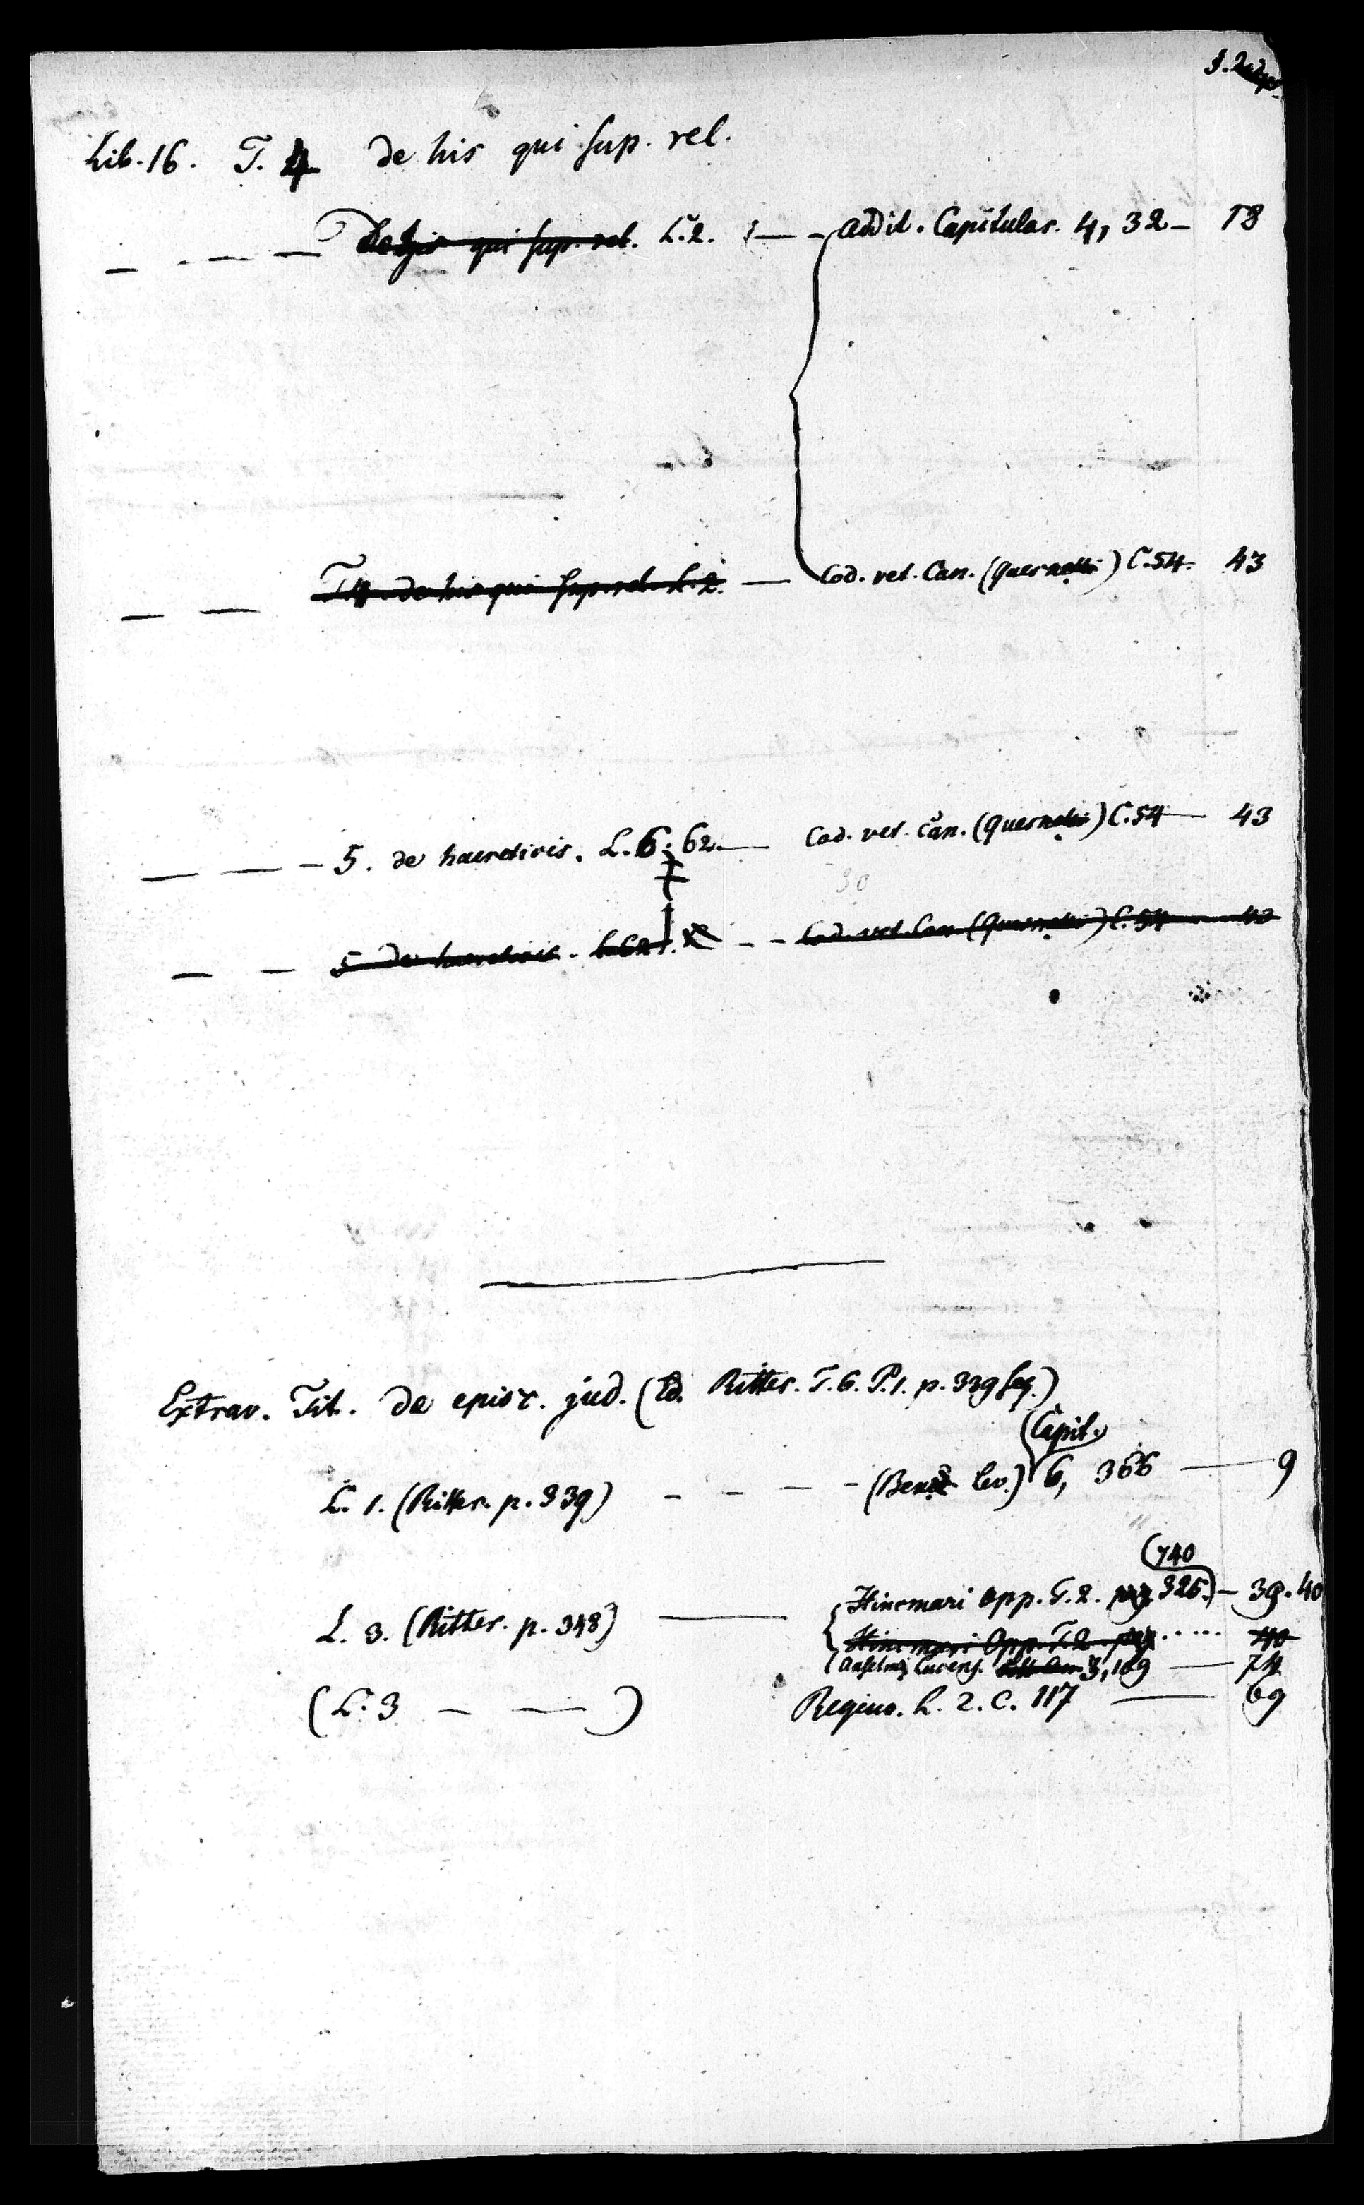 Lib. 16. T. 4 de his qui sup. rel.
— - — — De his qui sup. rel. L. 2. — - Addit. Capitular. 4, 32 - 18
— — T. 4. de his qui sup. rel. L. 2. — Cod. vet. Can. (Quesnelli) C. 54. 43
— — - 5. de haereticis. L. 6. 62. — Cod. vet. can. (Quesnelli) C. 54 — 43
— — 5 de haereticis. L. 62. - - Cod. vet. Can. (Quesnelli) C. 54 43
Extrav. Tit. de episc. jud. (Ed. Ritter. T. 6. P. 1. p. 339 seq.)
Capit.
L. 1. (Ritter. p. 339) - - - - (Bened. Lev.) 6, 366 — 9
(740
L. 3. (Ritter. p. 348) — Hincmari Opp. T. 2. pag 325.) - 39. 40
Hincmari Opp. T. 2. pag..... 40
Anselmi Lucens. 3, 109 — 74
(L. 3 — —) Regino. L. 2. C. 117 — 69